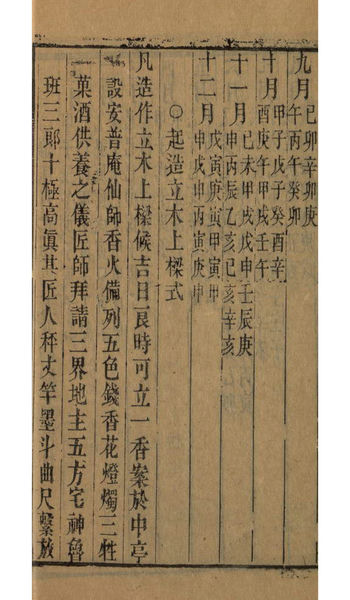 九月己卯辛卯庚午丙午癸卯
十月甲子戊子癸酉辛酉庚午甲戌壬午
十一月己未甲戌戊申壬辰庚申丙辰乙亥己亥辛亥
十二月戊寅庚寅甲寅甲申戊申丙寅庚申
○起造立木上樑式
凡造作立木上樑候吉日良時可立一香案於中亭
設安普庵仙師香火備列五色錢香花燈燭三牲
菓酒供養之儀匠師拜請三界地主五方宅神魯
班三郎十極高眞其匠人秤丈竿墨斗曲尺繫放